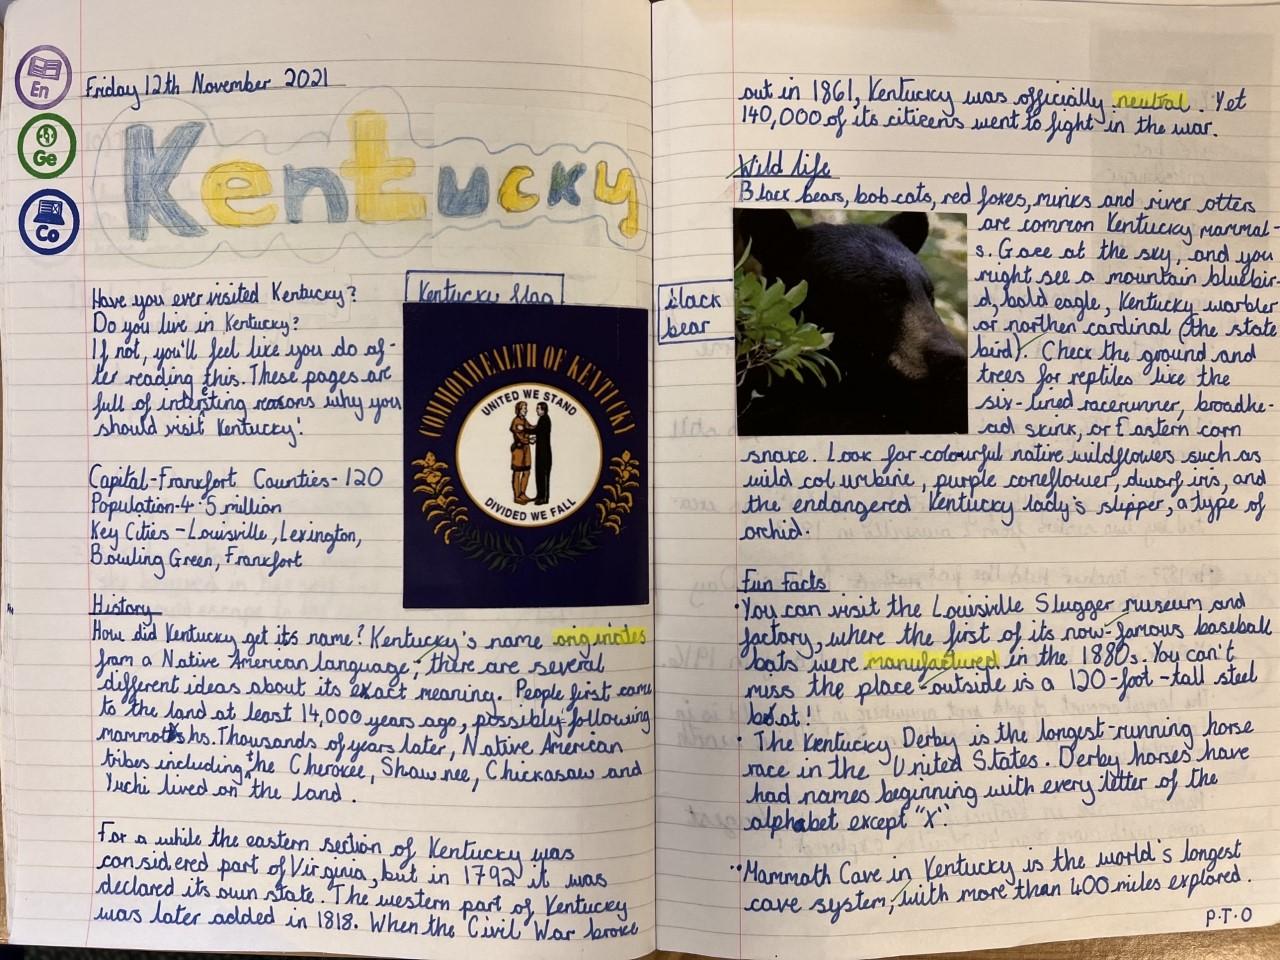 En
Ge
Co
Friday 12th November 2021
Kentucky
Have you ever visited Kentucky?
Do you live in Kentucky?
If not, you'll feel like you do af-
ter reading this. These pages are
full of intersting reasons why you
should visit Kentucky!
Kentucky flag
COMMONWEALTH OF KENTUCKY
UNITED WE STAND
DIVIDED WE FALL
Capital-Frankfort Counties-120
Population-4.5 million
Key Cities-Louisville, Lexington,
Bowling Green, Frankfort
History
How did Kentucky get its name? Kentucky's name originates
from a Native American language; there are several
different ideas about its exact meaning. People first came
to the land at least 14,000 years ago, possibly following
Thousands of years later, Native American
tribes including the Cherokee, Shawnee, Chickasaw and
Yuchi lived on the land.
For a while the eastern section of Kentucky was
considered part of Virginia, but in 1792 it was
declared its own state. The western part of Kentucky
was later added in 1818. When the Civil War broke
out in 1861, Kentucky was officially neutral. Yet
140,000 of its citicens went to fight in the war.
Wild life
Black bears, bob cats, red foxes, minks and river otters
are common Kentucky mammal-
s. Gaze at the sky, and you
might see a mountain bluebir-
d, bald eagle, Kentucky warbler
or northen cardinal (the state
bird). Check the ground and
trees for reptiles like the
six-lined racerunner, broadhe-
ad skink, or Eastern corn
snake. Look for colourful native wildflowers such as
wild columbine, purple coneflower, dwarf iris, and
the endangered Kentucky lady's slipper, a type of
orchid.
black
bear
Fun Facts
• You can visit the Louisville Slugger museum and
factory, where the first of its now-famous baseball
bats were manufactured in the 1880s. You can't
miss the place-outside is a 120-foot-tall steel
bat!
• The Kentucky Derby is the longest-running horse
race in the United States. Derby horses have
had names beginning with every letter of the
alphabet except "X".
• Mammoth Cave in Kentucky is the world's longest
cave system, with more than 400 miles explored.
P.T.O